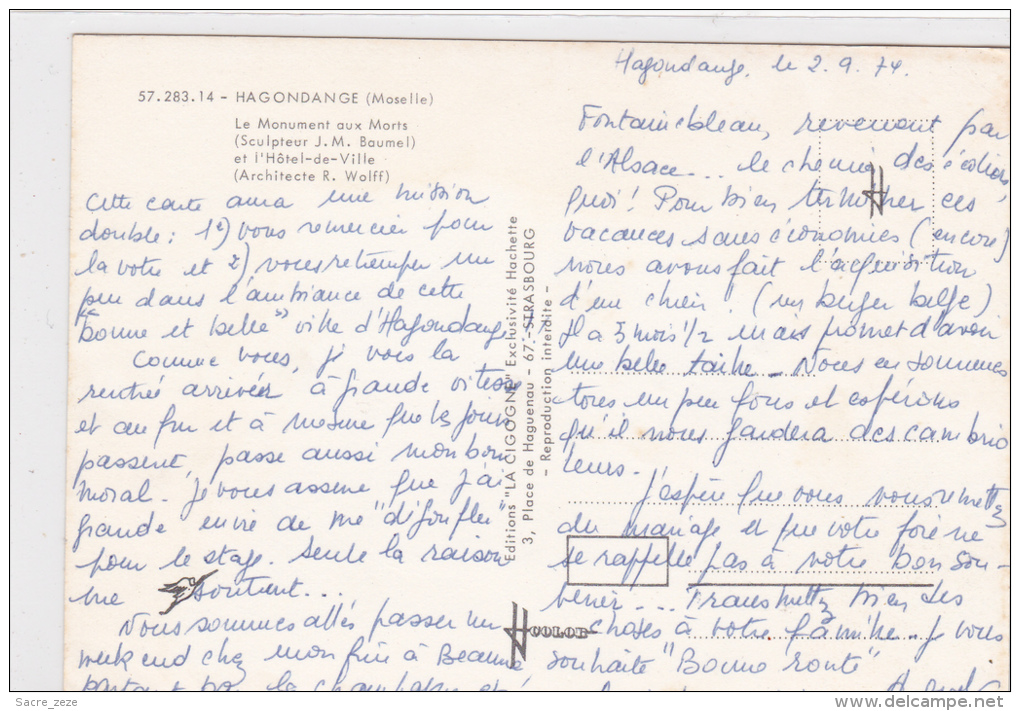 57.283.14 - HAGONDANGE (Moselle)
Le Monument aux Morts
(Sculpteur J. M. Baumel)
et l'Hôtel-de-Ville
(Architecte R. Wolff)
Cette carte aura une mission
double : 1°) vous remercier pour
la votre et 2) vous retremper un
peu dans l'ambiance de cette
"bonne et belle" ville d'Hagondange
Comme vous, je vois la
rentrée arriver à grande vitesse
et au fur et à mesure que les jours
passent, passe aussi mon bon
moral. Je vous assure que j'ai
grande envie de me "dégonfler"
pour le stage. Seule la raison
me soutient...
Nous sommes allés passer un
week end chez mon frère à Beaune,
partant par la champagne et
Editions "LA CIGOGNE" Exclusivité Hachette
3, Place de Haguenau - 67 - STRASBOURG
- Reproduction interdite -
COLOR
Hagondange, le 2.9.74.
Fontainebleau, revenant par
l'Alsace... le chemin des écoliers
quoi! Pour bien terminer ces
vacances sans économies (encore)
nous avons fait l'acquisition
d'un chien. (un berger belge)
Il a 5 mois 1/2 mais promet d'avoir
une belle taille - Nous en sommes
tous un peu fous et espérons
qu'il nous gardera des cambrio
leurs.
J'espère que vous vous remettez
du mariage et que votre foie ne
se rappelle pas à votre bon sou-
venir... Transmettez bien des
choses à votre famille. Je vous
souhaite "Bonne route"
Sacre_zeze
delcampe.net